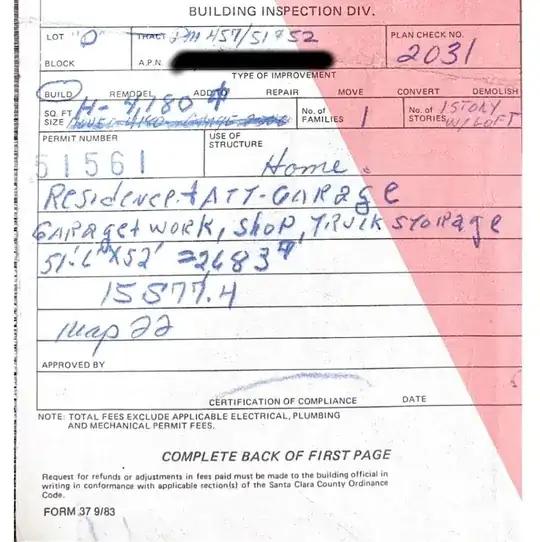 BUILDING INSPECTION DIV.
LOT "O" TRACT PM 457/51+52 PLAN CHECK NO.
BLOCK A.P.N. 2031
TYPE OF IMPROVEMENT
BUILD REMODEL ADD TO REPAIR MOVE CONVERT DEMOLISH
SQ. FT. SIZE H- 4,180 No. of FAMILIES 1 No. of STORIES 1 STORY W/LOFT
PERMIT NUMBER USE OF STRUCTURE
51561 Home.
Residence + ATT-GARAGE
GARAGE + WORK, SHOP, TRUCK STORAGE
51'.6" X 52' = 2683
15877.4
Map 22
APPROVED BY
CERTIFICATION OF COMPLIANCE DATE
NOTE: TOTAL FEES EXCLUDE APPLICABLE ELECTRICAL, PLUMBING
AND MECHANICAL PERMIT FEES.
COMPLETE BACK OF FIRST PAGE
Request for refunds or adjustments in fees paid must be made to the building official in
writing in conformance with applicable section(s) of the Santa Clara County Ordinance
Code.
FORM 37 9/83